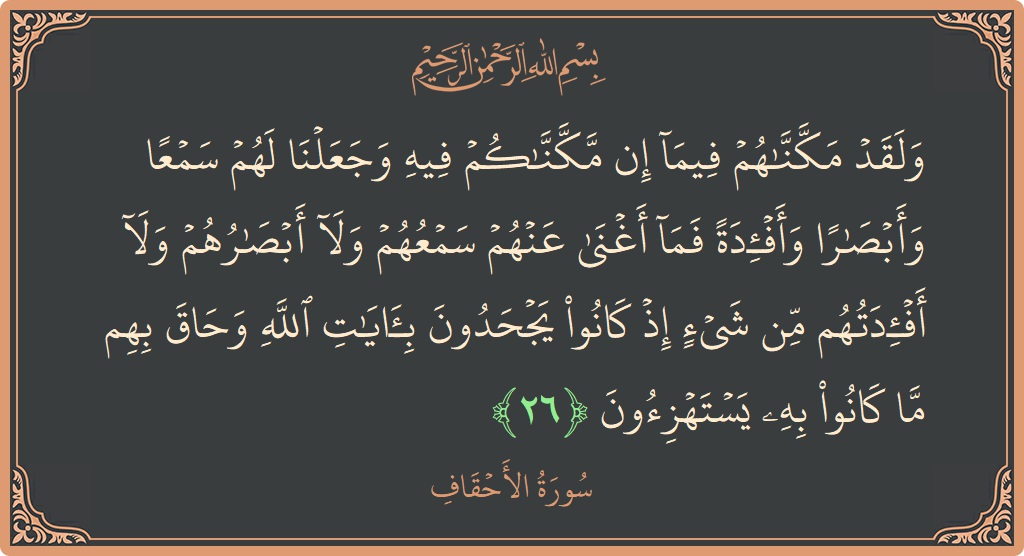 بِسْمِ اللهِ الرَّحْمٰنِ الرَّحِيْمِ
وَلَقَدۡ مَكَّنَّـٰهُمۡ فِيمَآ إِن مَّكَّنَّـٰكُمۡ فِيهِ وَجَعَلۡنَا لَهُمۡ سَمۡعًا
وَأَبۡصَـٰرًا وَأَفۡـِٔدَةً فَمَآ أَغۡنَىٰ عَنۡهُمۡ سَمۡعُهُمۡ وَلَآ أَبۡصَـٰرُهُمۡ وَلَآ
أَفۡـِٔدَتُهُم مِّن شَىۡءٍ إِذۡ كَانُواْ يَجۡحَدُونَ بِـَٔايَـٰتِ ٱللَّهِ وَحَاقَ بِهِم
مَّا كَانُواْ بِهِۦ يَسۡتَهۡزِءُونَ ﴿٢٦﴾
سُورَةُ الأَحۡقَافِ